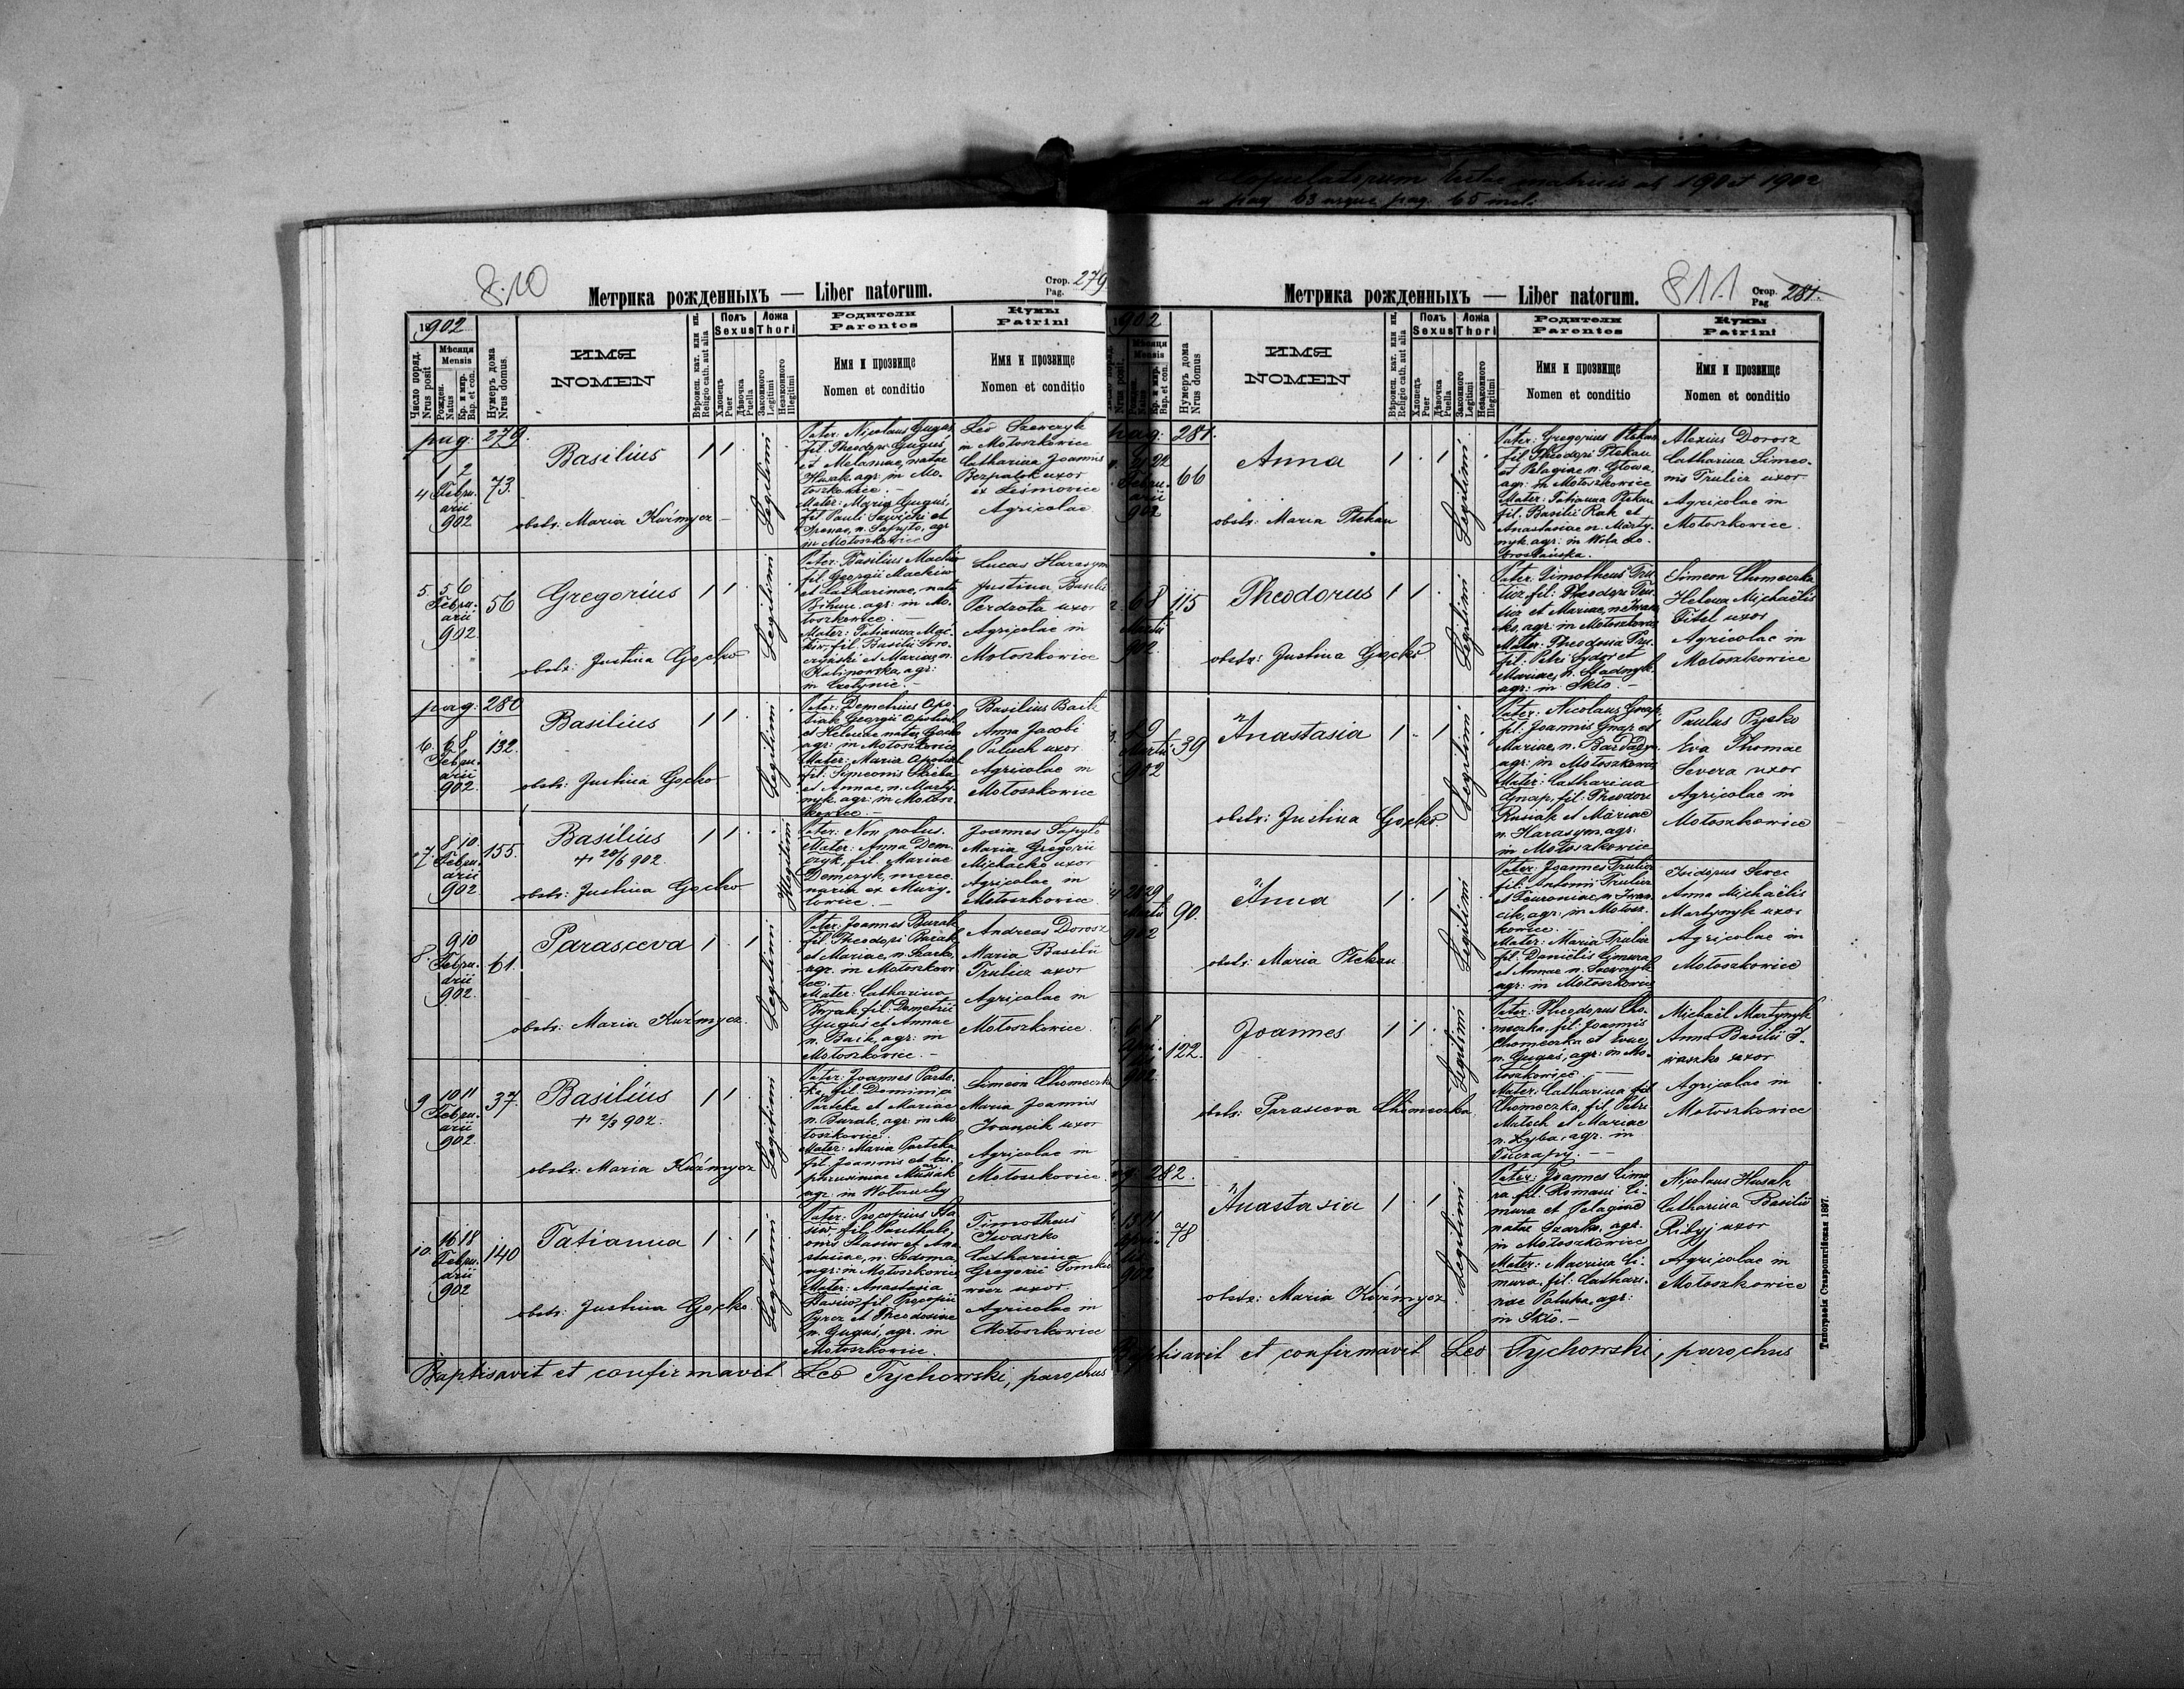 Copulatorum huius matricis at 190 et 1902
a pag 63 usque pag. 65 incl.
810
Метрика рожденныхъ — Liber natorum.
Стор. 279
Pag.
1902
Число поряд.
Nrus posit
Мѣсяця
Mensis
Рожден.
Natus
Кр. и мир.
Bap. et con.
Нумеръ дома
Nrus domus.
ИМЯ
NOMEN
Вѣроисп. кат. или ин.
Religio cath. aut alia
Полъ
Sexus
Хлопець
Puer
Дѣвочка
Puella
Ложа
Thori
Законного
Legitimi
Незаконного
Illegitimi
Родители
Parentes
Имя и прозвище
Nomen et conditio
Кумы
Patrini
Имя и прозвище
Nomen et conditio
pag: 279.
4 1 2
Febru-
arii
902
73.
Basilius
obstr: Maria Kuźmycz
1 1
Legitimi
Pater: Nicolaus Guguś
fil. Theodori Guguś
et Melaniae, natae
Husak. agr: in Mo-
łoszkowice. —
Mater: Maria Guguś,
fil. Pauli
in Mołoszkowice
Leo Szewczyk
in Mołoszkowice
Catharina Joannis
Bezpalok uxor
ex Leśmovice
Agricolae
5. 5 6
Febru-
arii
902.
56
Gregorius
obstr: Justina Gocko
1 1
Legitimi
Pater: Basilius
fil. Georgii Maćkiw
et Catharinae, nata
agr: in Mo-
łoszkowice. —
Mater: Tatianna
fil. Basilii
et Mariae, n.
Kalinowska, agr:
Lucas Harasym
Justina Basilii
Perdzota uxor
Agricolae in
Mołoszkowice
pag: 280
6. 6 8
Febru-
arii
902.
132.
Basilius
obstr: Justina Gocko
1 1
Legitimi
Pater: Demetrius
Georgii
et Helenae natae, Gocko
agr: in Mołoszkowice
Mater: Maria
fil: Simeonis
et Annae, n. Marty-
nyk. agr: in Mołosz-
kowice. —
Basilius Baik
Anna Jacobi
Paluch uxor
Agricolae in
Mołoszkowice
7. 8 10.
Febru-
arii
902
155.
Basilius
+ 20/6 902.
obstr: Justina Gocko
1 1
Illegitimi
Pater: Non notus.
Mater: Anna Dem-
czyk, fil. Mariae
Demczyk, merce-
naria ex Muży-
łowice. —
Joannes Sapyto
Maria Gregorii
Michacko uxor
Agricolae in
Mołoszkowice
8. 9 10
Febru-
arii
902.
61.
Parasceva
obstr: Maria Kuźmycz.
1 1
Legitimi
Pater: Joannes Burak,
fil. Theodori Burak
et Mariae, n.
agr. in Mołoszkowi-
ce.
Mater: Catharina
Burak, fil. Demetrii
Guguś et Annae
n. Baik, agr: in
Mołoszkowice. —
Andreas Dorosz
Maria Basilii
Trulicz uxor
Agricolae in
Mołoszkowice.
9 10 11
Febru-
arii
902.
37.
Basilius
+ 2/3 902.
obstr: Maria Kuźmycz
1 1
Legitimi
Pater: Joannes Parte-
ka, fil. Dominici
Parteka et Mariae
n. Burak, agr: in Mo-
łoszkowice.
Mater: Maria Parteka
fil. Joannis et Eu-
phrosinae
agr: in
Simeon Chomeczka
Maria Joannis
Iwancik uxor
Agricolae in
Mołoszkowice.
10. 16 18
Febru-
arii
902
140
Tatianna
obstr: Justina Gocko
1 1
Legitimi
Pater: Procopius
fil. Panthale-
onis
agr: in Mołoszkowice
Mater: Anastasia
fil. Procopii
et Theodosiae
n. Guguś, agr. in
Mołoszkowice.
Timotheus
Iwaszko
Catharina
Gregorii
uxor.
Agricolae in
Mołoszkowice
Baptisavit et confirmavit Leo Tychowski, parochus
811
Метрика рожденныхъ — Liber natorum.
Стор. 281.
Pag.
1902
Мѣсяця
Mensis
Рожден.
Natus
Кр. и мир.
Bap. et con.
Нумеръ дома
Nrus domus
ИМЯ
NOMEN
Вѣроисп. кат. или ин.
Religio cath. aut alia
Полъ
Sexus
Хлопець
Puer
Дѣвочка
Puella
Ложа
Thori
Законного
Legitimi
Незаконного
Illegitimi
Родители
Parentes
Имя и прозвище
Nomen et conditio
Кумы
Patrini
Имя и прозвище
Nomen et conditio
pag: 281.
22
Febru-
arii
902
66
Anna
obstr: Maria Ptekan
1 1
Legitimi
Pater: Gregorius Ptekan
fil. Theodori Ptekan
et Pelagiae n. Głowa,
agr: in Mołoszkowice
Mater: Tatianna Ptekan
fil. Basilii Rak et
Anastasiae n. Marty-
nyk. agr: in Wola Do-
brostańska.
Alexius Dorosz
Catharina Simeo-
nis Trulicz uxor
Agricolae in
Mołoszkowice.
6 8
Martii
902.
115
Theodorus
obstr: Justina Gocko
1 1
Legitimi
Pater: Timotheus Tru-
licz, fil: Theodori Tru-
licz et Mariae, n. Iwasz-
ko, agr: in Mołoszkowice
Mater: Theodosia Tru.
fil: Petri Sydor et
Mariae, n.
agr: in Skło. —
Simeon Chomeczka
Helena Michaëlis
Fitel uxor
Agricolae in
Mołoszkowice
8 9
Martii
902
39
Anastasia
obstr: Justina Gocko.
1 1
Legitimi
Pater: Nicolaus Gnap,
fil: Joannis Gnap et
Mariae, n.
agr: in Mołoszkowice
Mater: Catharina
Gnap, fil: Theodori
Rusiak et Mariae
n. Harasym. agr:
in Mołoszkowice
Paulus Pyrko
Eva Thomae
Severa uxor
Agricolae in
Mołoszkowice
28 29
Martii
902
90.
Anna
obstr: Maria Ptekan
1 1
Legitimi
Pater: Joannes Trulicz
fil: Antonii Trulicz
et Feuroniae, n. Iwan-
cik, agr: in Mołosz-
kowice.
Mater: Maria Trulicz
fil: Daniëlis Cymura
et Annae n. Szewczyk
agr: in Mołoszkowice
Isidorus Swec
Anna Michaëlis
Martynyk uxor
Agricolae in
Mołoszkowice
6 8
902.
122.
Joannes
obstr: Parasceva Chomeczka
1 1
Legitimi
Pater: Theodorus Cho-
meczka, fil: Joannis
Chomeczka et Evae,
n. Guguś, agr: in Mo-
łoszkowice. —
Mater: Catharina
Chomeczka, fil: Petri
et Mariae
n. Łyba, agr. in
Michaël Martynyk
Anna Basilii I-
waszko uxor
Agricolae in
Mołoszkowice
pag: 282.
13 14
902
78
Anastasia
obstr: Maria Kuźmycz
1 1
Legitimi
Pater: Joannes Cimu-
ra fil: Romani Ci-
mura et Pelagiae
natae agr.
in Mołoszkowice
Mater: Macrina Ci-
mura, fil: Cathari-
nae agr:
in Skło. —
Nicolaus Husak
Catharina Basilii
Ribyj uxor
Agricolae in
Mołoszkowice
Baptisavit et confirmavit Leo Tychowski, parochus
Типографія Ставропигійская 1897.